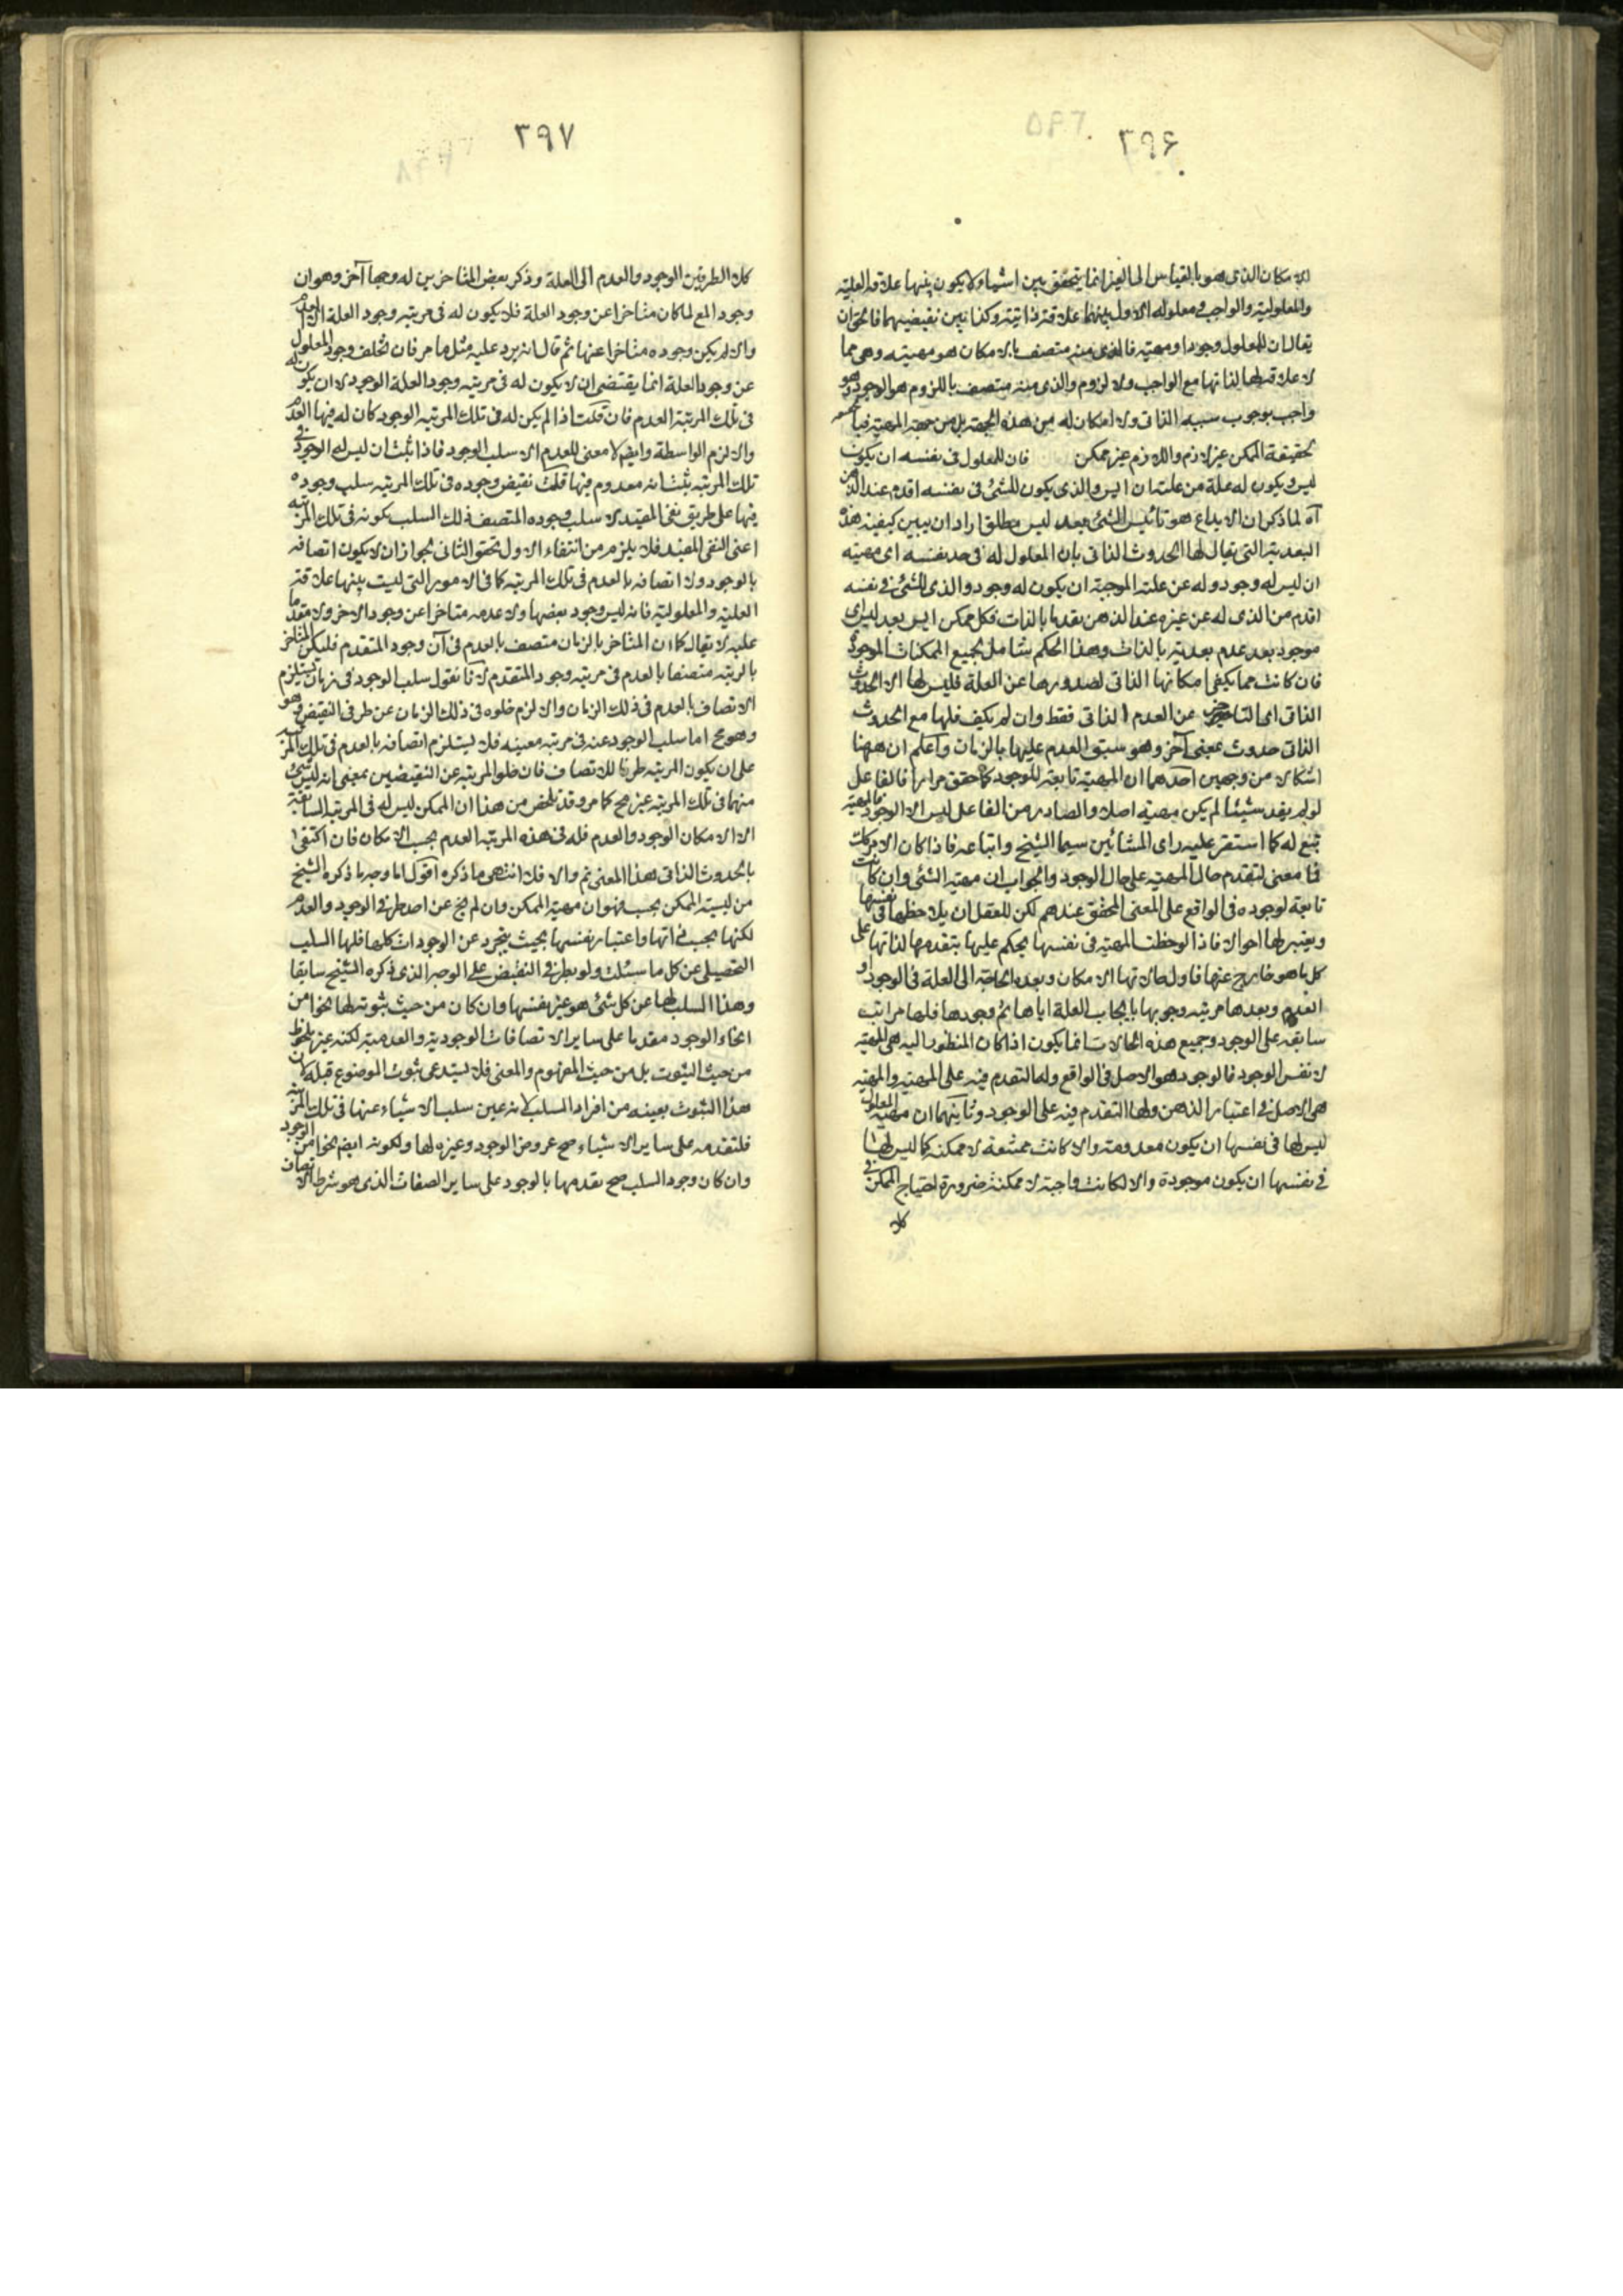 ٣٩۶
الامكان الذى هو بالقياس الى الغير انما يتحقق بين اشياء لا يكون بينها علاقة العلية
والمعلولية والواجب فى معلوله الاول بينهما علاقة ذاتية وكذا بين نقيضيهما فالحق ان
يقال ان للمعلول وجودا ومهية فالذى منه متصف بالامكان هو مهيته وهى مما
لا علاقة لها لذاتها مع الواجب ولا لزوم والذى منه متصف باللزوم هو الوجود وهو
واجب بوجوب سببه الذاتى ولا امكان له من هذه الجهة بل من جهة المهية
حقيقة الممكن غير لازم واللازم غير ممكن فان للمعلول فى نفسه ان يكون
ليس ويكون له علة من علته ان ايس والذى يكون للشئ فى نفسه اقدم عند الذهن
آه لما ذكر ان الابداع هو تأييس الشئ بعد ليس مطلق اراد ان يبين كيفية هذه
البعدية التى يقال لها الحدوث الذاتى بان المعلول له فى حد نفسه اى مهيته
ان ليس له وجود وله عن علته الموجبة ان يكون له وجود والذى للشئ فى نفسه
اقدم من الذى له عن غيره عند الذهن بقدما بالذات فكل ممكن ايس بعد ليس اى
موجود بعد عدم بعدية بالذات وهذا الحكم شامل لجميع الممكنات الموجودة
فان كانت مما يكفى امكانها الذاتى لصدورها عن العلة فليس لها الا الحدوث
الذاتى اى التاخر عن العدم الذاتى فقط وان لم يكف فلها مع الحدوث
الذاتى حدوث بمعنى آخر وهو سبق العدم عليها بالزمان واعلم ان ههنا
اشكالا من وجهين احدهما ان المهية تابعة للوجود كما حقق مرارا فالفاعل
لو لم يفد شيئا لم يكن مهية اصلا والصادر من الفاعل ليس الا الوجود فالمهية
تبع له كما استقر عليه راى المشائين سيما الشيخ واتباعه فاذا كان الامر كذلك
فما معنى لتقدم حال المهية على حال الوجود والجواب ان مهية الشئ وان كانت
تابعة لوجوده فى الواقع على المعنى المحقق عندهم لكن للعقل ان يلاحظها فى نفسها
ويعتبر لها احوالا فاذا لوحظت المهية فى نفسها يحكم عليها بتقدمها لذاتها على
كل ما هو خارج عنها فاول حالاتها الامكان وبعده الحاجة الى العلة فى الوجود او
العدم وبعدها مرتبة وجوبها بايجاب العلة اياها ثم وجودها فلها مراتب
سابقة على الوجود وجميع هذه الحالات انما يكون اذا كان المنظور اليه هى المهية
لا نفس الوجود فالوجود هو الاصل فى الواقع وله التقدم فيه على المهية والمهية
هى الاصل فى اعتبار الذهن ولها التقدم فيه على الوجود وثانيهما ان مهية المعلول
ليس لها فى نفسها ان يكون معدومة والا كانت ممتنعة لا ممكنة كما ليس لها
فى نفسها ان يكون موجودة والا لكانت واجبة لا ممكنة ضرورة احتياج الممكن فى
كلا
٣٩٧
كلا الطرفين الوجود والعدم الى العلة وذكر بعض المتاخرين له وجها آخر وهو ان
وجود المع لما كان متاخرا عن وجود العلة فلا يكون له فى مرتبة وجود العلة الا العدم
والا لم يكن وجوده متاخرا عنها ثم قال انه يرد عليه مثل ما مر فان تخلف وجود المعلول
عن وجود العلة انما يقتضى ان لا يكون له فى مرتبة وجود العلة الوجود لا ان يكون له
فى تلك المرتبة العدم فان قلت اذا لم يكن له فى تلك المرتبة الوجود كان له فيها العدم
والا لزم الواسطة وايضا لا معنى للعدم الا سلب الوجود فاذا ثبت ان ليس له الوجود فى
تلك المرتبة ثبت انه معدوم فيها قلت نقيض وجوده فى تلك المرتبة سلب وجوده
فيها على طريق نفى المقيد لا سلب وجوده المتصف ذلك السلب بكونه فى تلك المرتبة
اعنى النفى المقيد فلا يلزم من انتفاء الاول تحقق الثانى لجواز ان لا يكون اتصافه
بالوجود ولا اتصافه بالعدم فى تلك المرتبة كما فى الامور التى ليست بينها علاقة
العلية والمعلولية فانه ليس وجود بعضها ولا عدمه متاخرا عن وجود الاخر ولا متقدما
عليه لا يقال كما ان المتاخر بالزمان متصف بالعدم فى آن وجود المتقدم فليكن المتاخر
بالرتبة متصفا بالعدم فى مرتبة وجود المتقدم لانا نقول سلب الوجود فى زمان يستلزم
الاتصاف بالعدم فى ذلك الزمان والا لزم خلوه فى ذلك الزمان عن طرفى النقيض وهو
وهو مح اما سلب الوجود عنه فى مرتبة معينة فلا يستلزم اتصافه بالعدم فى تلك المرتبة
على ان يكون المرتبة ظرفا للاتصاف فان خلو المرتبة عن النقيضين بمعنى انه ليس شئ
منهما فى تلك المرتبة غير مح كما مر وقد تلخص من هذا ان الممكن ليس له فى المرتبة السابقة
الا الامكان الوجود والعدم فله فى هذه المرتبة العدم بحسب الامكان فان اكتفى
بالحدوث الذاتى بهذا المعنى تم والا فلا انتهى ما ذكره اقول اما وجه ما ذكره الشيخ
من ليسية الممكن بحسبه فهو ان مهية الممكن وان لم يخ عن احد طرفى الوجود والعدم
لكنها بحسب ذاتها واعتبار نفسها بحيث يتجرد عن الوجودات كلها فلها السلب
التحصيلى عن كل ما سئلت ولو بطرفى النقيض على الوجه الذى ذكره الشيخ سابقا
وهذا السلب لها عن كل شئ هو غير نفسها وان كان من حيث ثبوته لها نحوا من
انحاء الوجود مقدما على ساير الاتصافات الوجودية والعدمية لكنه غير ملحوظ
من حيث الثبوت بل من حيث المفهوم والمعنى فلا يستدعى ثبوت الموضوع قبله لان
هذا الثبوت بعينه من افراد السلب لانه عين سلب الاشياء عنها فى تلك المرتبة
فلتقدمه على ساير الاشياء صح عروض الوجود وغيره لها ولكونه ايضا نحوا من الوجود
وان كان وجود السلب صح تقدمها بالوجود على ساير الصفات الذى هو شرط الاتصاف